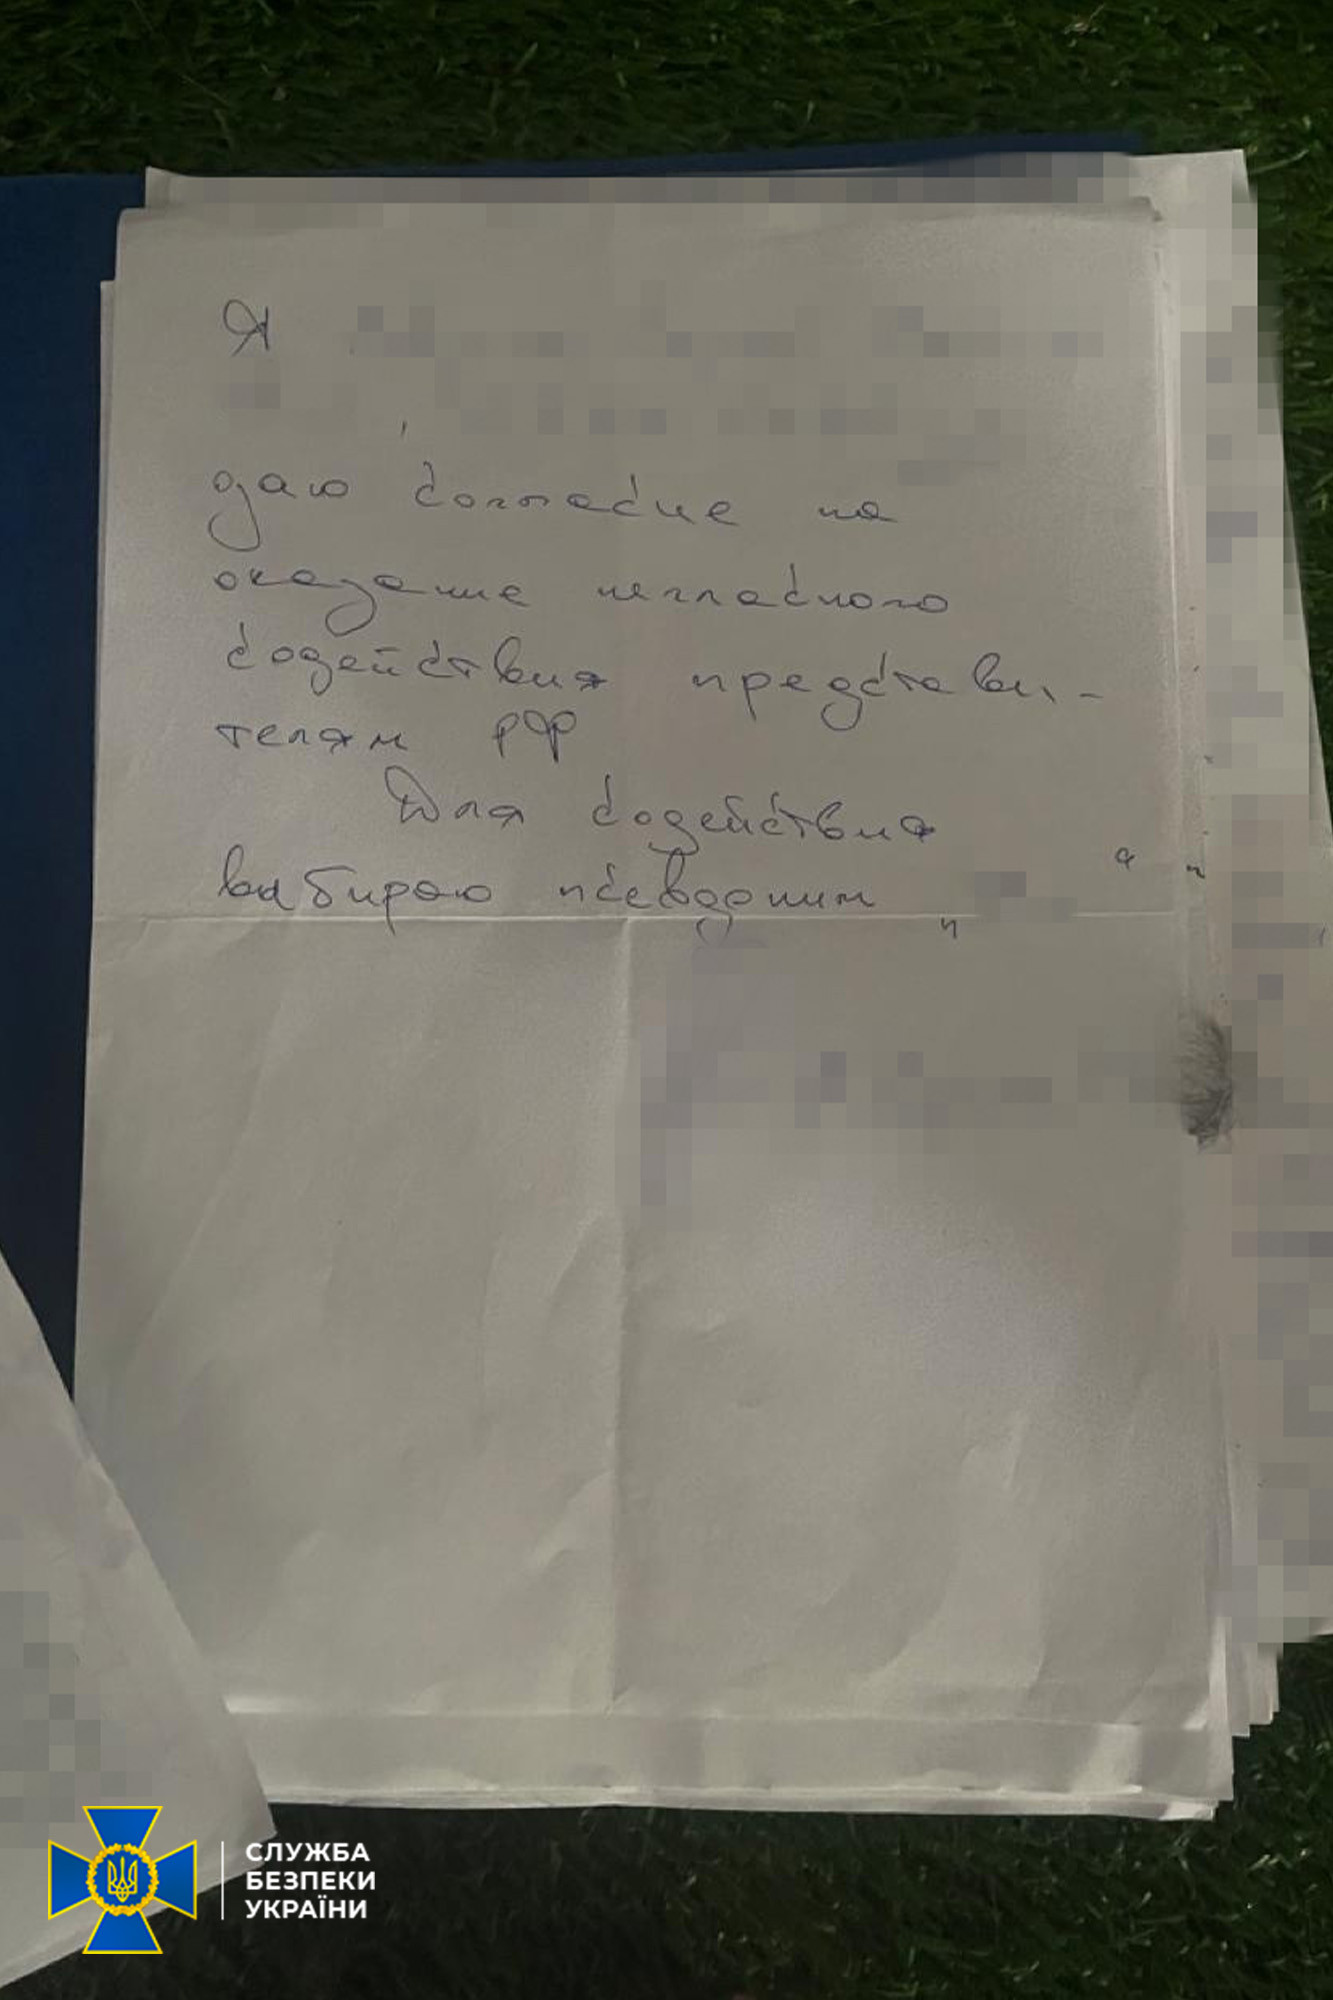 Я
даю согласие на
оказание негласного
содействия представи-
телям РФ
Для содействия
выбираю псевдоним "
СЛУЖБА
БЕЗПЕКИ
УКРАЇНИ